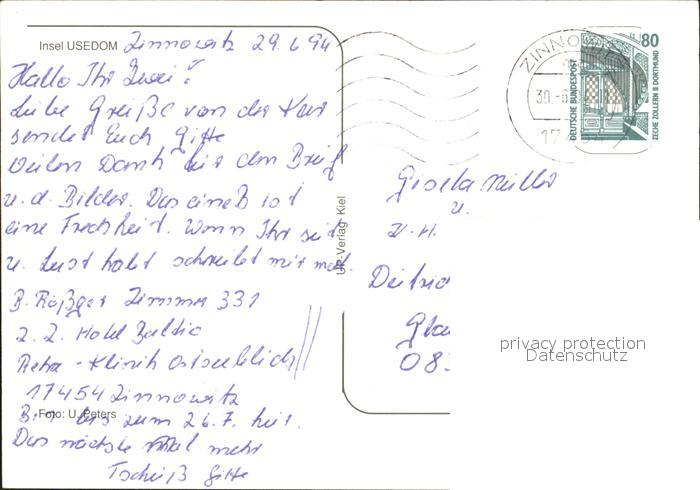 Insel USEDOM Zinnowitz 29.6.94
Hallo Ihr Zwei!
Liebe Grüße von der Kur
sendet Euch Gitte
Vielen Dank für den Brief
u. d. Bilder. Das eine ist
eine Frechheit. Wenn Ihr seit
u. Lust habt schreibt mir mal.
B. Rößger Zimmer 331
z. Z. Hotel Baltic
Reha-Klinik Ostseeblick
17454 Zinnowitz
Foto: U. Peters
Bin bis zum 26.7. hier.
Das nächste Mal mehr
Tschüß Gitte
UP Verlag Kiel
ZINNOWITZ
30.-6.
17
80
DEUTSCHE BUNDESPOST
ZECHE ZOLLERN II DORTMUND
Gisela Müller
u.
Dietric
Gla
08
privacy protection
Datenschutz